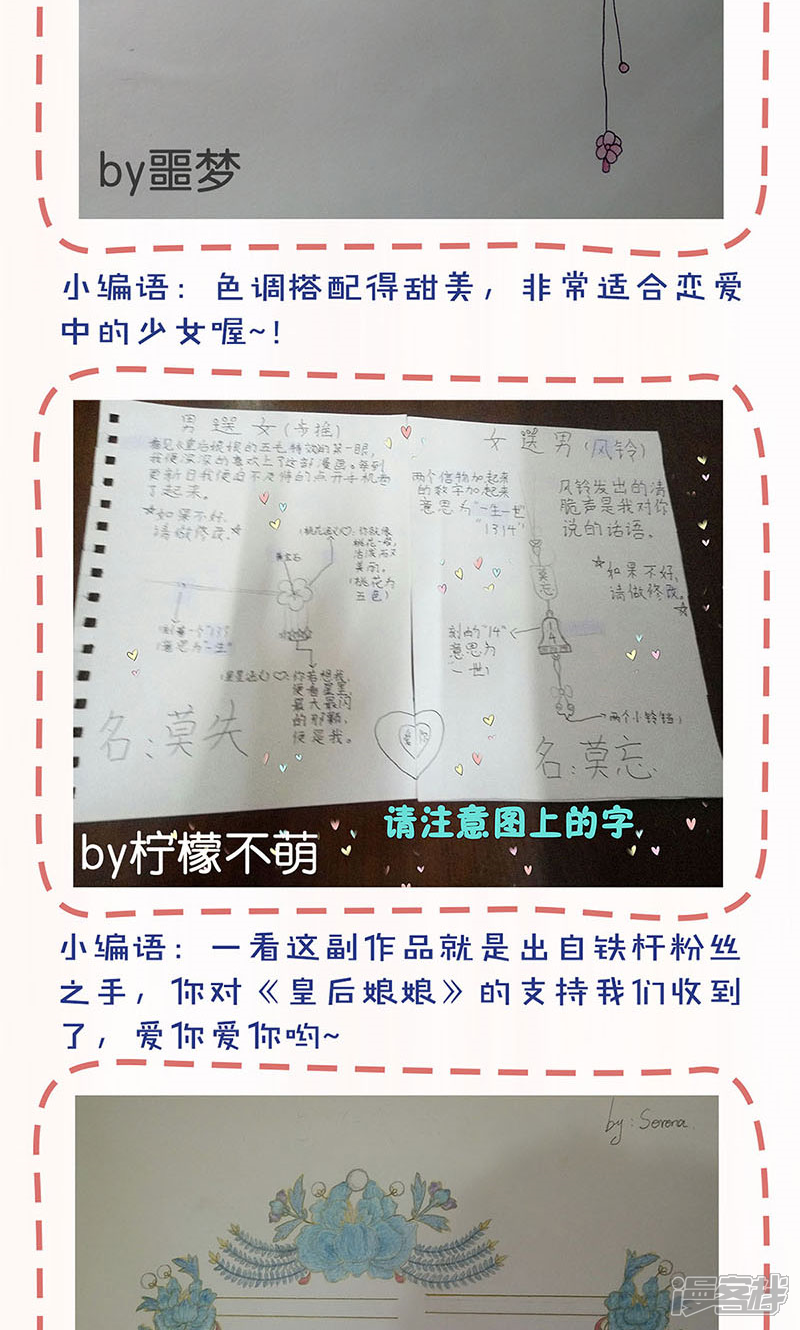 by噩梦
小编语：色调搭配得甜美，非常适合恋爱
中的少女喔~！
男送女(步摇)
看见《皇后娘娘的五毛特效》的第一眼，
我便深深的喜欢上了这部漫画。每到
更新日我便迫不及待的点开手机看
了起来。
☆如果不好，
请做修改。☆
美丽。
(桃花为
五色)
意思为"一生"
你若想我，
便看星星，
最大最闪
的那颗，
便是我。
名：莫失
女送男(风铃)
两个信物加起来
的数字加起来
意思为"一生一世"
"1314"
风铃发出的清
脆声是我对你
说的话语。
☆如果不好，
请做修改。
☆
莫忘
刻的"14"
意思为
"一世"
14
两个小铃铛
名：莫忘
请注意图上的字
by柠檬不萌
小编语：一看这副作品就是出自铁杆粉丝
之手，你对《皇后娘娘》的支持我们收到
了，爱你爱你哟~
by：Serena.
漫客栈